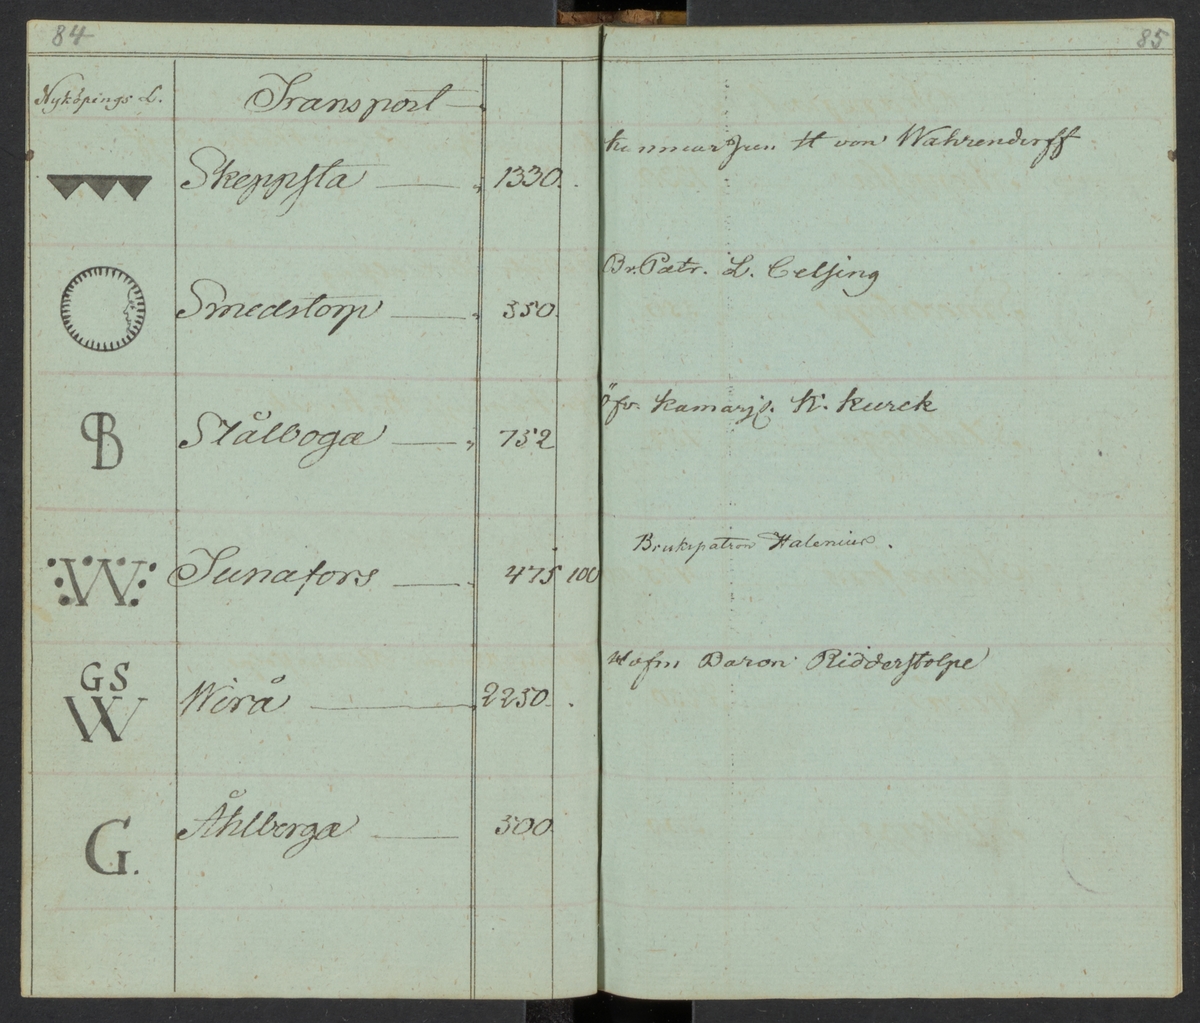 84
85
Nyköpings L. Transport
Skeppsta 1330. von Wahrendorff
Smedstorp 350. Br. Patr. L. Celsing
B Stålboga 752 Öfv. Kamarj. K. Kurck
:W: Sunafors 475 100 Brukspatron Halenius.
GS
W Wirå 2250. Hofm Baron Ridderstolpe
G. Åhlberga 300